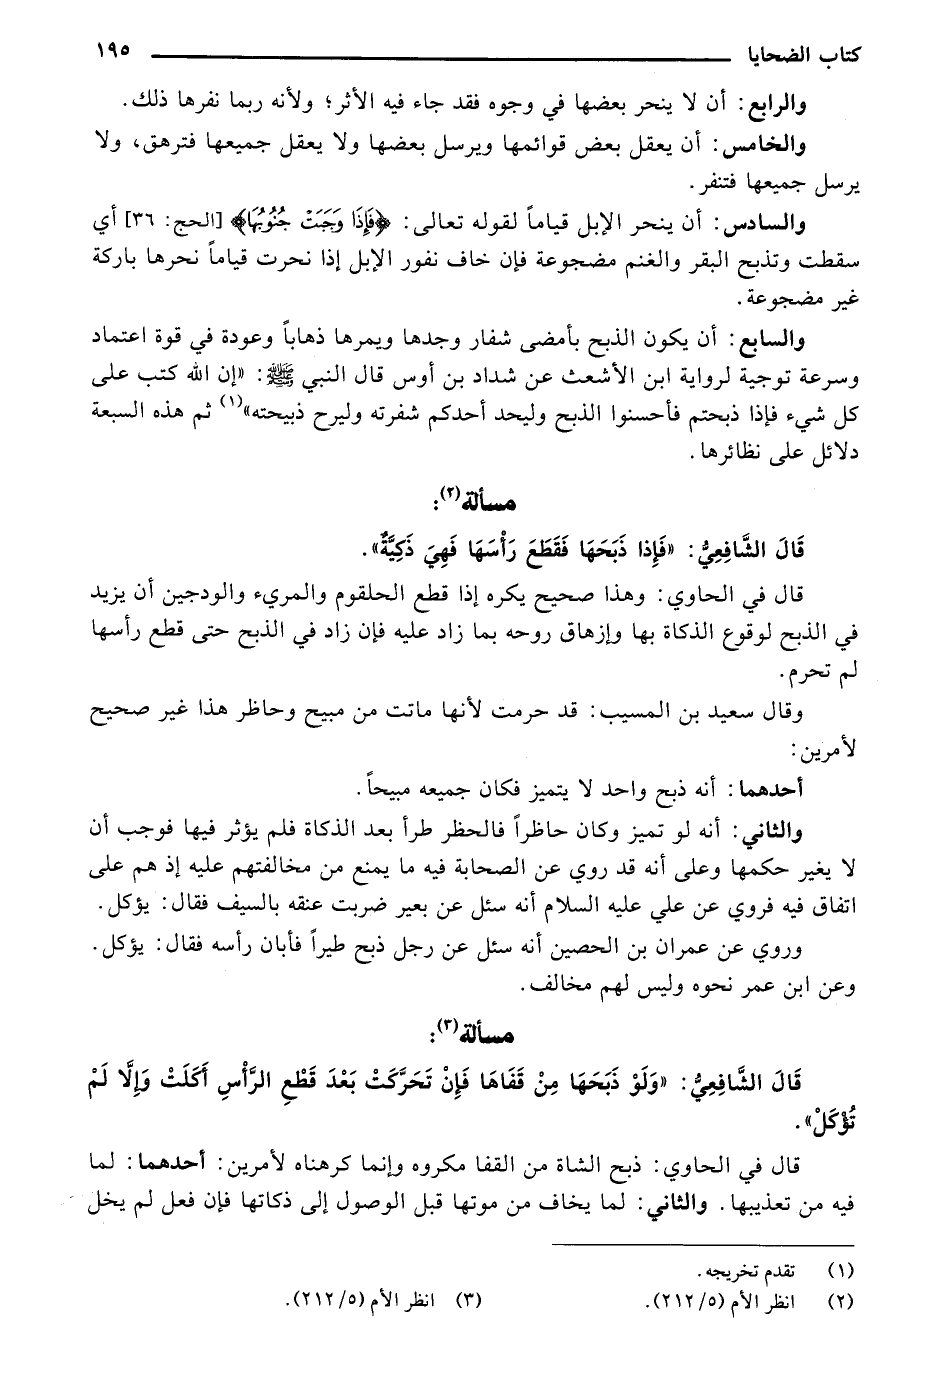 كتاب الضحايا ١٩٥
والرابع: أن لا ينحر بعضها في وجوه فقد جاء فيه الأثر؛ ولأنه ربما نفرها ذلك.
والخامس: أن يعقل بعض قوائمها ويرسل بعضها ولا يعقل جميعها فترهق، ولا
يرسل جميعها فتنفر.
والسادس: أن ينحر الإبل قياماً لقوله تعالى: ﴿فَإِذَا وَجَبَتْ جُنُوبُهَا﴾ [الحج: ٣٦] أي
سقطت وتذبح البقر والغنم مضجوعة فإن خاف نفور الإبل إذا نحرت قياماً نحرها باركة
غير مضجوعة.
والسابع: أن يكون الذبح بأمضى شفار وجدها ويمرها ذهاباً وعودة في قوة اعتماد
وسرعة توجية لرواية ابن الأشعث عن شداد بن أوس قال النبي ﷺ: «إن الله كتب على
كل شيء فإذا ذبحتم فأحسنوا الذبح وليحد أحدكم شفرته وليرح ذبيحته»(١) ثم هذه السبعة
دلائل على نظائرها.
مسألة(٢):
قَالَ الشَّافِعِيُّ: «فَإِذا ذَبَحَهَا فَقَطَعَ رَأْسَهَا فَهِيَ ذَكِيَّةٌ».
قال في الحاوي: وهذا صحيح يكره إذا قطع الحلقوم والمريء والودجين أن يزيد
في الذبح لوقوع الذكاة بها وإزهاق روحه بما زاد عليه فإن زاد في الذبح حتى قطع رأسها
لم تحرم.
وقال سعيد بن المسيب: قد حرمت لأنها ماتت من مبيح وحاظر هذا غير صحيح
لأمرين:
أحدهما: أنه ذبح واحد لا يتميز فكان جميعه مبيحاً.
والثاني: أنه لو تميز وكان حاظراً فالحظر طرأ بعد الذكاة فلم يؤثر فيها فوجب أن
لا يغير حكمها وعلى أنه قد روي عن الصحابة فيه ما يمنع من مخالفتهم عليه إذ هم على
اتفاق فيه فروي عن علي عليه السلام أنه سئل عن بعير ضربت عنقه بالسيف فقال: يؤكل.
وروي عن عمران بن الحصين أنه سئل عن رجل ذبح طيراً فأبان رأسه فقال: يؤكل.
وعن ابن عمر نحوه وليس لهم مخالف.
مسألة(٣):
قَالَ الشَّافِعِيُّ: «وَلَوْ ذَبَحَهَا مِنْ قَفَاهَا فَإِنْ تَحَرَّكَتْ بَعْدَ قَطْعِ الرَّأْسِ أَكَلَتْ وَإِلَّا لَمْ
تُؤْكَلْ».
قال في الحاوي: ذبح الشاة من القفا مكروه وإنما كرهناه لأمرين: أحدهما: لما
فيه من تعذيبها. والثاني: لما يخاف من موتها قبل الوصول إلى ذكاتها فإن فعل لم يخل
(١) تقدم تخريجه.
(٢) انظر الأم (٢١٢/٥). (٣) انظر الأم (٢١٢/٥).